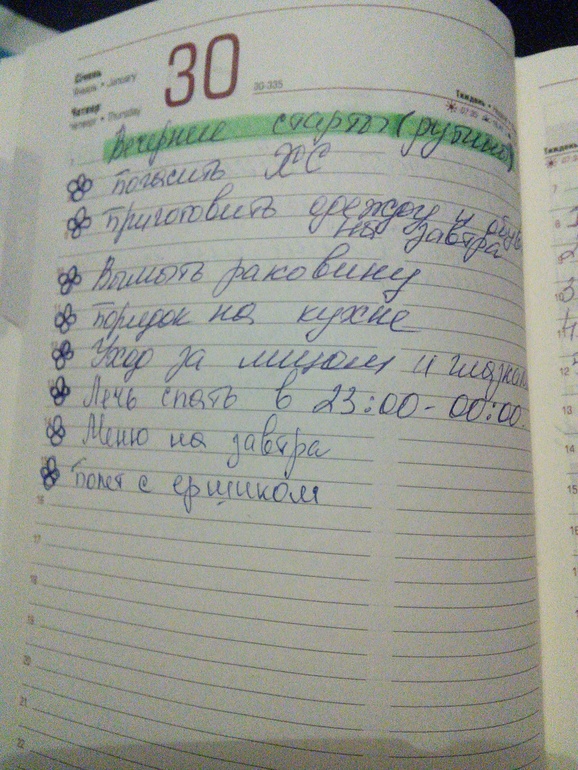 Січень
Январь • January
30
30-335
Четвер
Четверг • Thursday
Тиждень •
07:
Вечерние старты (рутина)
Погасить ХС
Приготовить одежду и обувь
на завтра
Вымыть раковину
Порядок на кухне
Уход за лицом и глазками
Лечь спать в 23:00-00:00.
Меню на завтра
Полет с ершиком
16
17
18
19
20
21
22
Тиждень
7
8
12
13
14
15